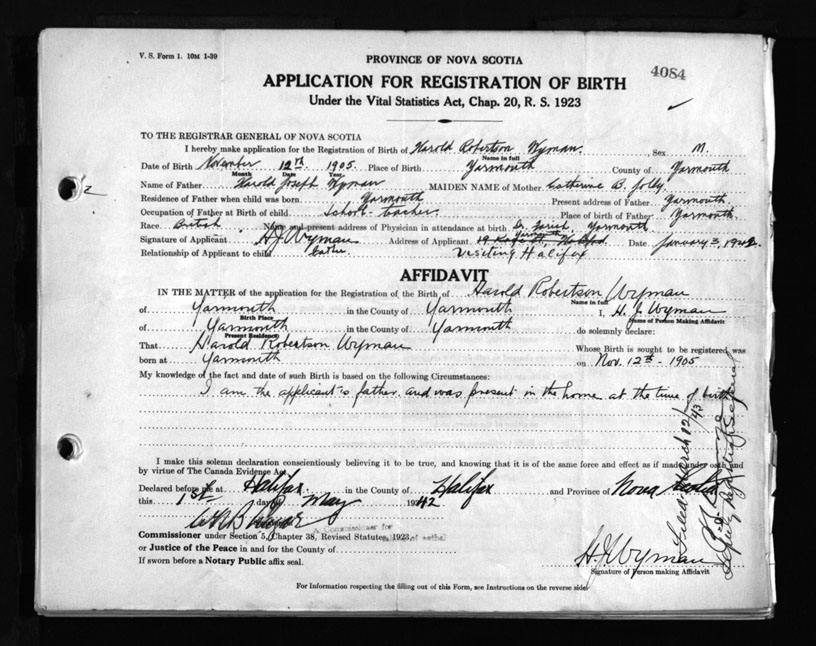 V. S. Form 1. 10M 1-39
PROVINCE OF NOVA SCOTIA
4084
APPLICATION FOR REGISTRATION OF BIRTH
Under the Vital Statistics Act, Chap. 20, R. S. 1923
TO THE REGISTRAR GENERAL OF NOVA SCOTIA
I hereby make application for the Registration of Birth of Harold Robertson Wyman, Sex M.
Name in full
Date of Birth November 12th 1905. Place of Birth Yarmouth County of Yarmouth
Month Date Year
Name of Father Harold Joseph Wyman MAIDEN NAME of Mother Catherine B. Jolly.
Residence of Father when child was born Yarmouth Present address of Father Yarmouth
Occupation of Father at Birth of child School-teacher Place of birth of Father Yarmouth
Race British Name and present address of Physician in attendance at birth Dr. Yarmouth
Signature of Applicant H J Wyman Address of Applicant Yarmouth Date January 1942
Relationship of Applicant to child father visiting Halifax
AFFIDAVIT
IN THE MATTER of the application for the Registration of the Birth of Harold Robertson Wyman
Name in full
of Yarmouth in the County of Yarmouth I, H. J. Wyman
Birth Place Name of Person Making Affidavit
of Yarmouth in the County of Yarmouth do solemnly declare:
Present Residence
That Harold Robertson Wyman Whose Birth is sought to be registered was
born at Yarmouth on Nov. 12th - 1905
My knowledge of the fact and date of such Birth is based on the following Circumstances:
I am the applicant's father and was present in the home at the time of birth
I make this solemn declaration conscientiously believing it to be true, and knowing that it is of the same force and effect as if made under oath and
by virtue of The Canada Evidence Act.
Declared before me at Halifax in the County of Halifax and Province of Nova Scotia
this 1st day of May 1942
A Commissioner for
Commissioner under Section 5, Chapter 38, Revised Statutes, 1923, of oaths
or Justice of the Peace in and for the County of
If sworn before a Notary Public affix seal.
H. J. Wyman
Signature of Person making Affidavit
For Information respecting the filling out of this Form, see Instructions on the reverse side.